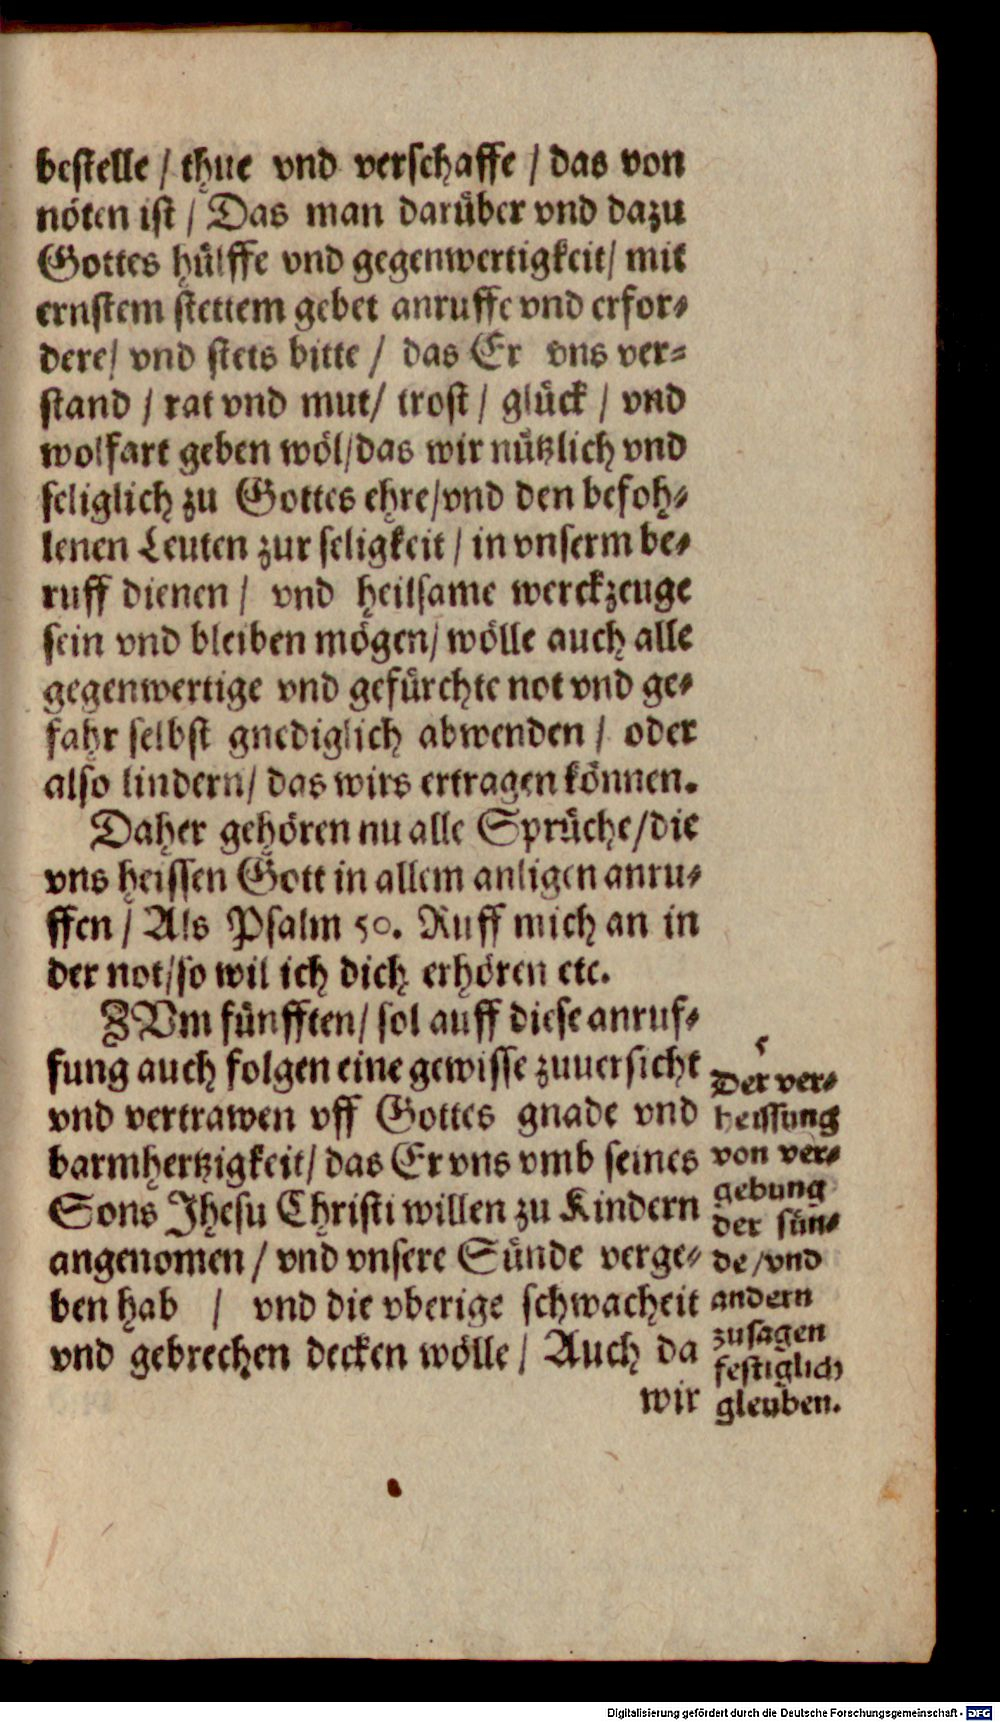 bestelle / thue vnd verschaffe / das von
nöten ist / Das man darüber vnd dazu
Gottes hülffe vnd gegenwertigkeit / mit
ernstem stettem gebet anruffe vnd erfor-
dere / vnd stets bitte / das Er vns ver-
stand / rat vnd mut / trost / glück / vnd
wolfart geben wöl / das wir nützlich vnd
seliglich zu Gottes ehre / vnd den befoh-
lenen Leuten zur seligkeit / in vnserm be-
ruff dienen / vnd heilsame werckzeuge
sein vnd bleiben mögen / wölle auch alle
gegenwertige vnd gefürchte not vnd ge-
fahr selbst gnediglich abwenden / oder
also lindern / das wirs ertragen können.
Daher gehören nu alle Sprüche / die
vns heissen Gott in allem anligen anru-
ffen / Als Psalm 50. Ruff mich an in
der not / so wil ich dich erhören etc.
ZVm fünfften / sol auff diese anruf-
fung auch folgen eine gewisse zuuersicht
vnd vertrawen vff Gottes gnade vnd
barmhertzigkeit / das Er vns vmb seines
Sons Jhesu Christi willen zu Kindern
angenomen / vnd vnsere Sünde verge-
ben hab / vnd die vberige schwacheit
vnd gebrechen decken wölle / Auch da
wir
5
Der ver-
heissung
von ver-
gebung
der sün-
de / vnd
andern
zusagen
festiglich
gleuben.
Digitalisierung gefördert durch die Deutsche Forschungsgemeinschaft - DFG